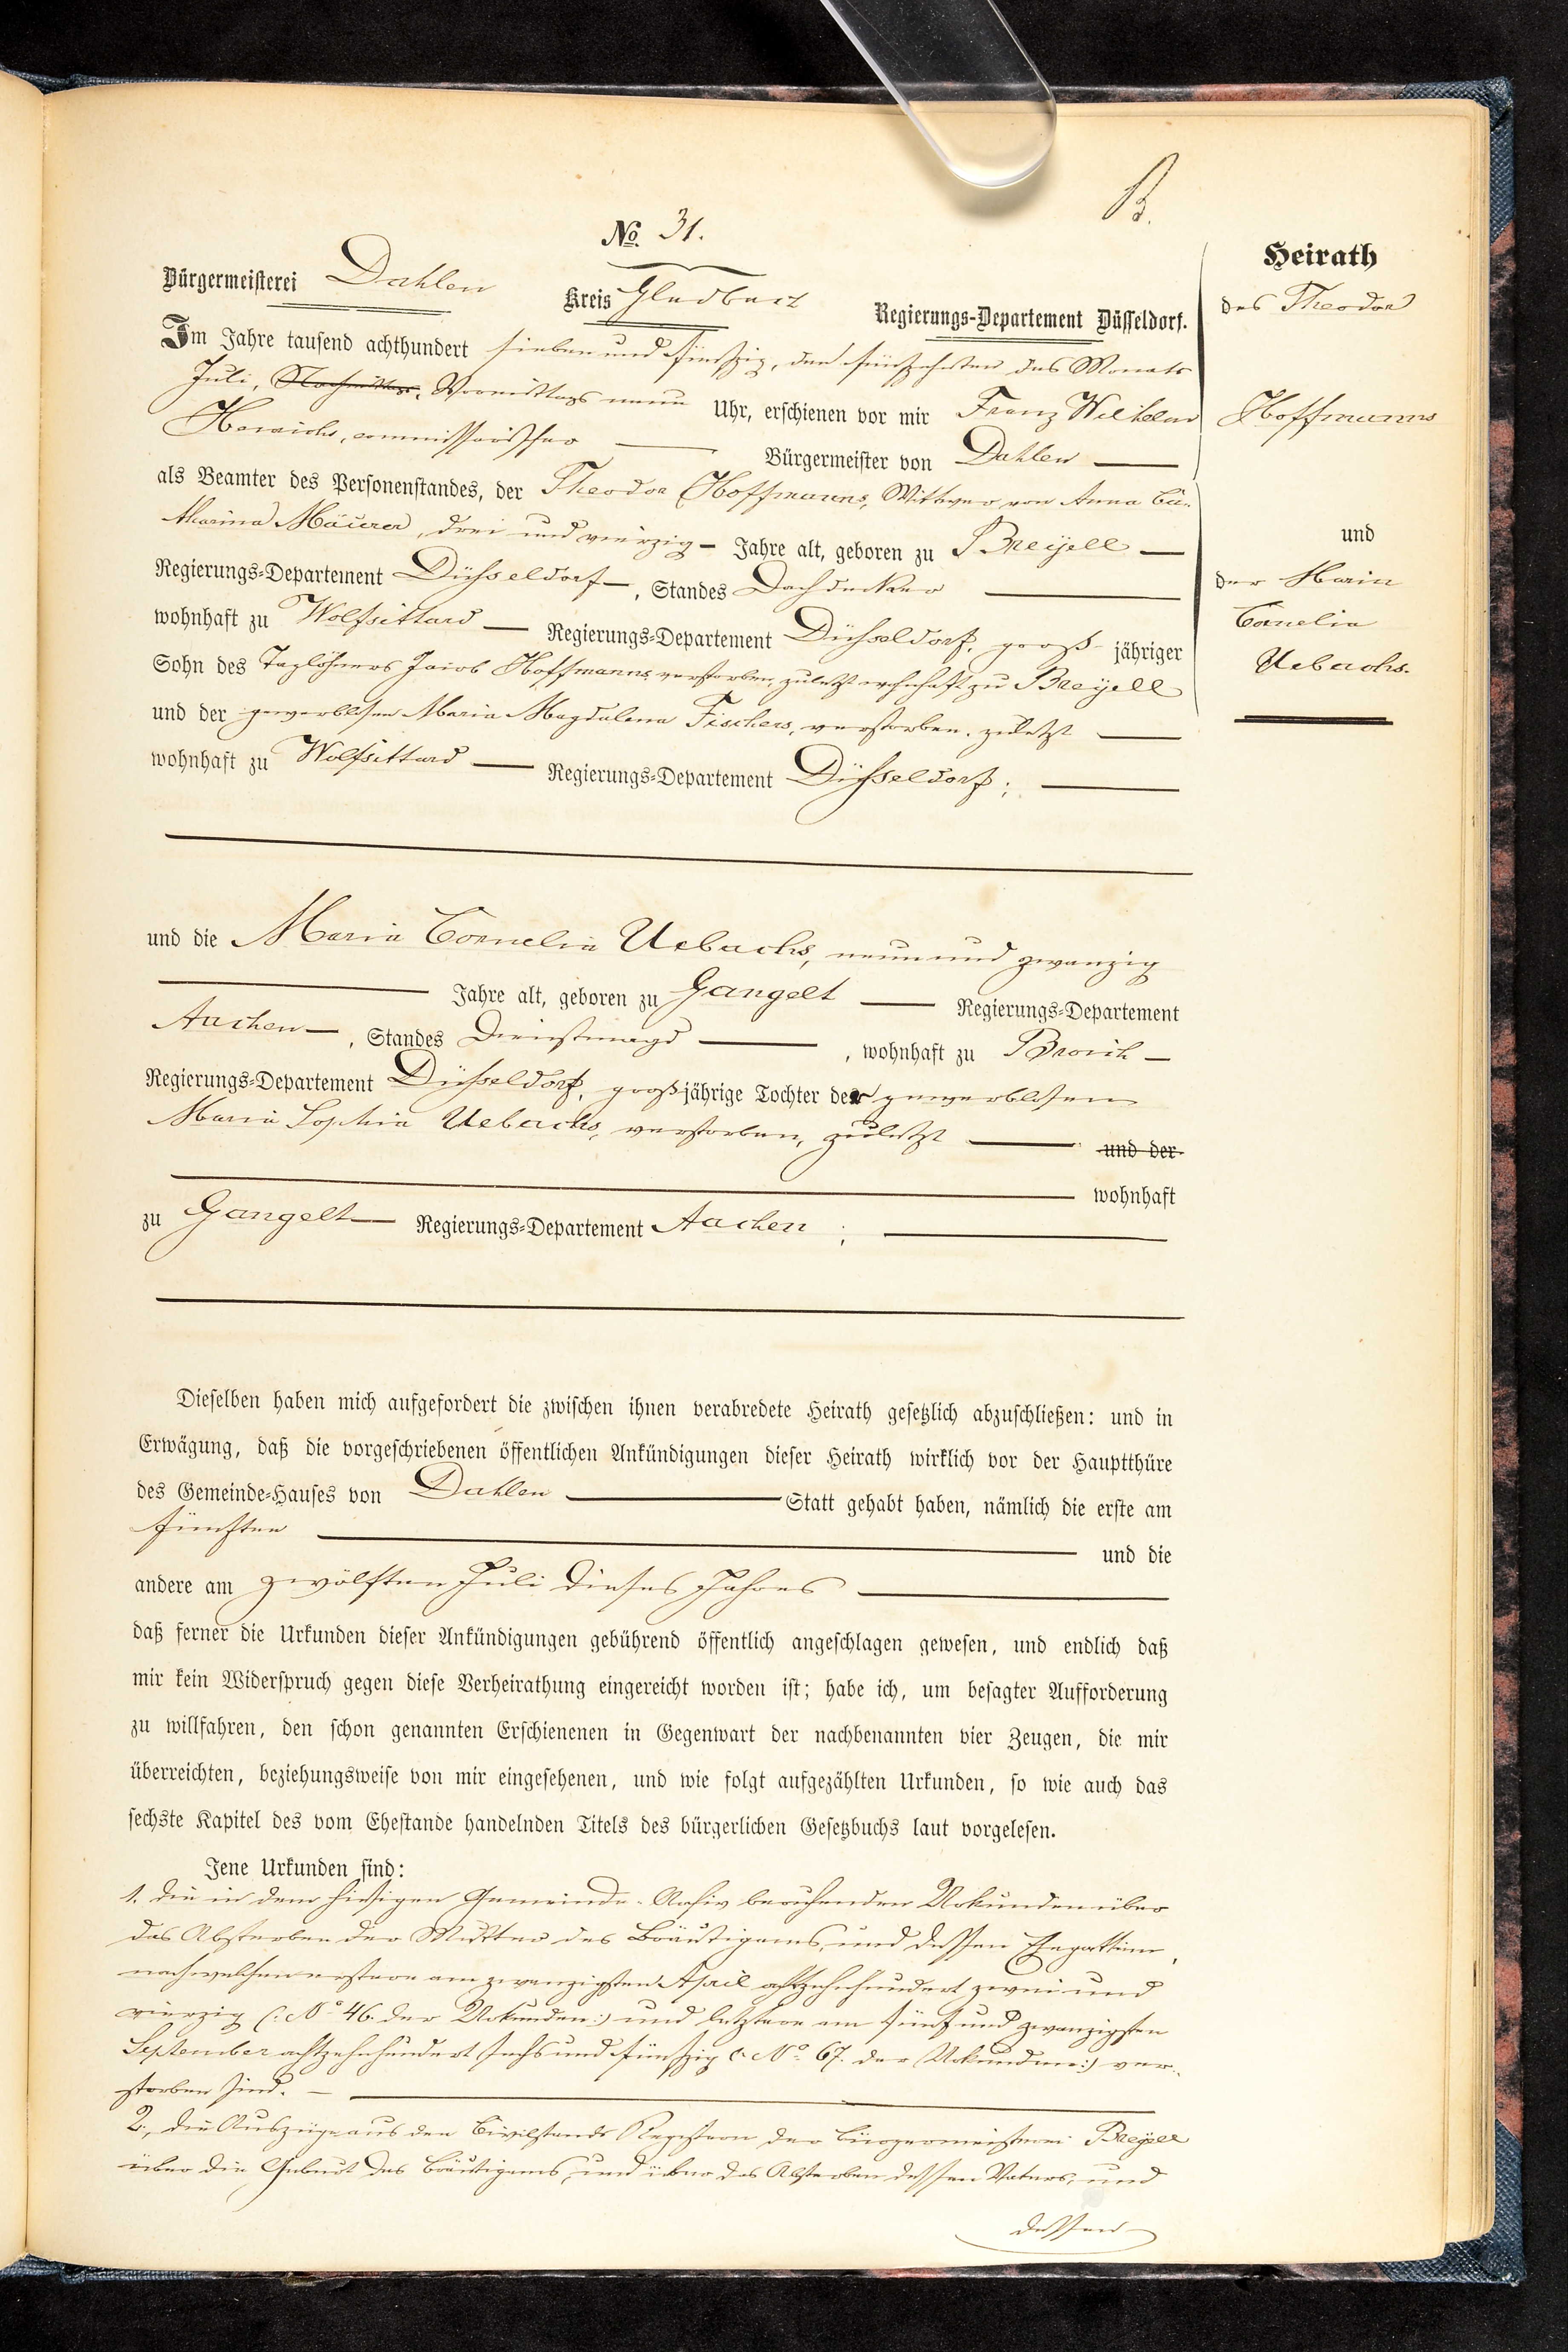 B.
No. 31.
Bürgermeisterei Dahlen Kreis Gladbach Regierungs-Departement Düsseldorf.
Im Jahre tausend achthundert sieben und fünfzig, den fünfzehnten des Monats
Juli, Nachmittags, Vormittags neun Uhr, erschienen vor mir Franz Wilhelm
commissarischer Bürgermeister von Dahlen
als Beamter des Personenstandes, der Theodor Hoffmanns, Wittwer von Anna Ca-
tharina Mäurer, drei und vierzig Jahre alt, geboren zu Breyell
Regierungs-Departement Düsseldorf, Standes Dachdecker
wohnhaft zu Wolfsittard Regierungs-Departement Düsseldorf, groß jähriger
Sohn des Taglöhners Jacob Hoffmanns, verstorben, zuletzt wohnhaft zu Breyell
und der gewerblosen Maria Magdalena Fischers, verstorben, zuletzt
wohnhaft zu Wolfsittard Regierungs-Departement Düsseldorf;
und die Maria Cornelia Uebachs, neun und zwanzig
Jahre alt, geboren zu Gangelt Regierungs-Departement
Aachen, Standes Dienstmagd, wohnhaft zu Broich
Regierungs-Departement Düsseldorf, großjährige Tochter der gewerblosen
Maria Sophia Uebachs, verstorben, zuletzt und der
wohnhaft
zu Gangelt Regierungs-Departement Aachen;
Dieselben haben mich aufgefordert die zwischen ihnen verabredete Heirath gesetzlich abzuschließen: und in
Erwägung, daß die vorgeschriebenen öffentlichen Ankündigungen dieser Heirath wirklich vor der Hauptthüre
des Gemeinde-Hauses von Dahlen Statt gehabt haben, nämlich die erste am
fünften und die
andere am zwölften Juli dieses Jahres
daß ferner die Urkunden dieser Ankündigungen gebührend öffentlich angeschlagen gewesen, und endlich daß
mir kein Widerspruch gegen diese Verheirathung eingereicht worden ist; habe ich, um besagter Aufforderung
zu willfahren, den schon genannten Erschienenen in Gegenwart der nachbenannten vier Zeugen, die mir
überreichten, beziehungsweise von mir eingesehenen, und wie folgt aufgezählten Urkunden, so wie auch das
sechste Kapitel des vom Ehestande handelnden Titels des bürgerlichen Gesetzbuchs laut vorgelesen.
Jene Urkunden sind:
1. die in dem hiesigen Gemeinde-Archiv beruhenden Urkunden über
das Absterben der Mutter des Bräutigams, und dessen Ehegattinn,
nach welchen erstere am zwanzigsten April achtzehnhundert zwei und
vierzig (: No 46. der Urkunden :) und letztere am fünf und zwanzigsten
September achtzehnhundert sechs und fünfzig (: No 67. der Urkunden :) ver-
storben sind.
2., die Auszüge aus den Civilstands Registern der Bürgermeisterei Breyell
über die Geburt des Bräutigams, und über das Absterben dessen Vaters, und
dessen
Heirath
des Theodor
Hoffmanns
und
der Maria
Cornelia
Uebachs.